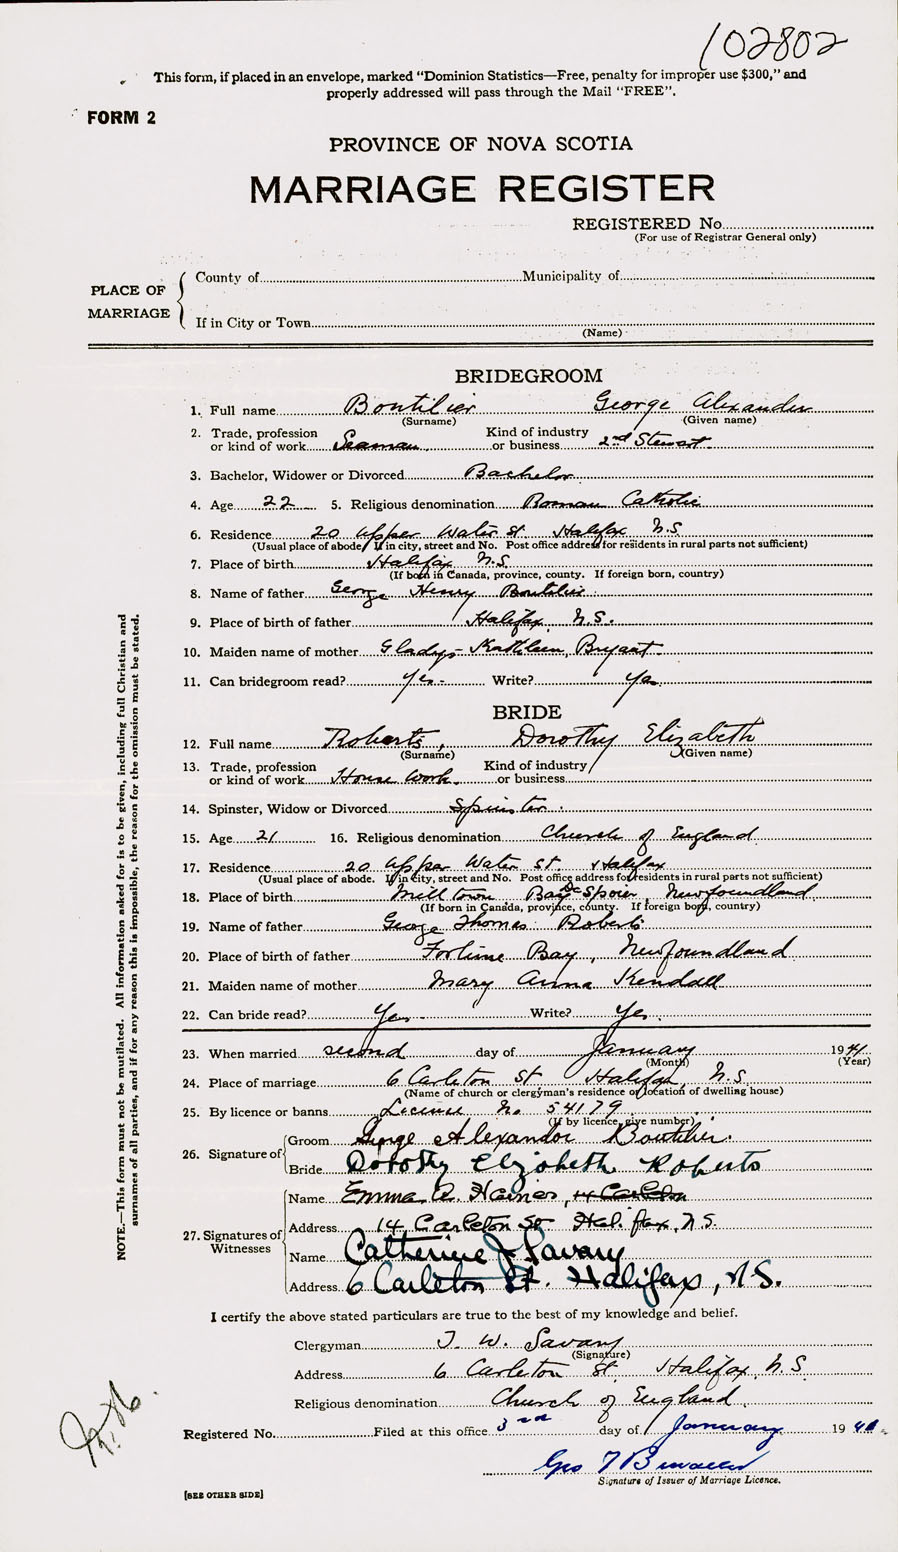 102802
This form, if placed in an envelope, marked “Dominion Statistics—Free, penalty for improper use $300,” and
properly addressed will pass through the Mail “FREE”.
FORM 2
PROVINCE OF NOVA SCOTIA
MARRIAGE REGISTER
REGISTERED No.
(For use of Registrar General only)
PLACE OF MARRIAGE
County of Municipality of
If in City or Town
(Name)
BRIDEGROOM
1. Full name Boutilier George Alexander
(Surname) (Given name)
2. Trade, profession or kind of work Seaman Kind of industry or business 2nd Stewart
3. Bachelor, Widower or Divorced Bachelor
4. Age 22 5. Religious denomination Roman Catholic
6. Residence 20 Upper Water St Halifax N.S
(Usual place of abode. If in city, street and No. Post office address for residents in rural parts not sufficient)
7. Place of birth Halifax N.S.
(If born in Canada, province, county. If foreign born, country)
8. Name of father George Henry Boutilier
9. Place of birth of father Halifax N.S.
10. Maiden name of mother Gladys Kathleen Bryant
11. Can bridegroom read? Yes Write? Yes
BRIDE
12. Full name Roberts, Dorothy Elizabeth
(Surname) (Given name)
13. Trade, profession or kind of work House work Kind of industry or business
14. Spinster, Widow or Divorced Spinster
15. Age 21 16. Religious denomination Church of England
17. Residence 20 Upper Water St. Halifax
(Usual place of abode. If in city, street and No. Post office address for residents in rural parts not sufficient)
18. Place of birth Milltown Bay De Spoier, Newfoundland
(If born in Canada, province, county. If foreign born, country)
19. Name of father George Thomas Roberts
20. Place of birth of father Fortune Bay, Newfoundland
21. Maiden name of mother Mary Anna Kendall
22. Can bride read? Yes Write? Yes.
23. When married second day of January 1941
(Month) (Year)
24. Place of marriage 6 Carleton St Halifax, N.S.
(Name of church or clergyman's residence or location of dwelling house)
25. By licence or banns License No 54179
(If by licence, give number)
26. Signature of Groom George Alexander Boutilier.
Bride Dorothy Elizabeth Roberts
27. Signatures of Witnesses
Name Emma A. Haines, 14 Carleton
Address 14 Carleton St Halifax, N.S.
Name Catherine J Savary
Address 6 Carleton St. Halifax, N.S.
I certify the above stated particulars are true to the best of my knowledge and belief.
Clergyman T. W. Savary
(Signature)
Address 6 Carleton St. Halifax, N.S.
Religious denomination Church of England
Registered No. Filed at this office 3rd day of January 1941.
Geo
Signature of Issuer of Marriage Licence.
[SEE OTHER SIDE]
NOTE.—This form must not be mutilated. All information asked for is to be given, including full Christian and
surnames of all parties, and if for any reason this is impossible, the reason for the omission must be stated.